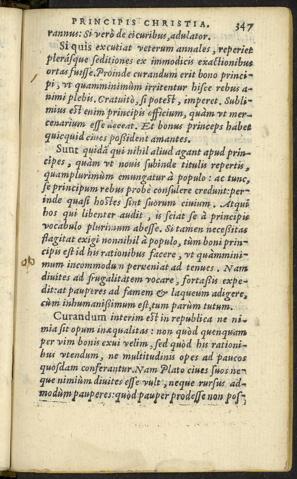 PRINCIPIS CHRISTIA. 347
rannus: Si verò de cicuribus, adulator.
Si quis excutiat veterum annales, reperiet
plerasque seditiones ex immodicis exactionibus
ortas fuisse. Proinde curandum erit bono princi-
pi, vt quamminimùm irritentur hisce rebus a-
nimi plebis. Gratuitò, si potest, imperet. Subli-
mius est enim principis officium, quàm vt mer-
cenarium esse deceat. Et bonus princeps habet
quicquid ciues possident amantes.
Sunt quidã qui nihil aliud agant apud prin-
cipes, quàm vt nouis subinde titulis repertis,
quamplurimùm emungatur à populo: ac tunc,
se principum rebus probè consulere credunt: per-
inde quasi hostes sint suorum ciuium. Atqui
hos qui libenter audit, is sciat se à principis
vocabulo plurimum abesse. Si tamen necessitas
flagitat exigi nonnihil à populo, tùm boni prin-
cipis est id his rationibus facere, vt quàmmini-
mum incommodi perueniat ad tenues. Nam
diuites ad frugalitatem vocare, fortassis expe-
dit: at pauperes ad famem & laqueum adigere,
cùm inhumanissimum est, tum parùm tutum.
Curandum interim est in republica ne ni-
mia sit opum inæqualitas: non quòd quenquam
per vim bonis exui velim, sed quòd his rationi-
bus vtendum, ne multitudinis opes ad paucos
quosdam conferantur. Nam Plato ciues suos ne-
que nimiùm diuites esse vult, neque rursus ad-
modùm pauperes: quòd pauper prodesse non pos-